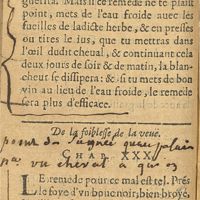 guerira. Mais si ce remede ne te plaist
point, mets de l'eau froide auec les
fueilles de ladicte herbe, & en presses
ou tires le ius, que tu mettras dans
l'œil dudit cheual, & continuant cela
deux iours de soir & de matin, la blan-
cheur se dissipera: & si tu mets de bon
vin au lieu de l'eau froide, le remede
sera plus d'efficace.
De la foiblesse de la veuë.
CHAP. XXX.
un cheval
LE remede pour ce mal est tel. Prés
le foye d'vn bouc noir, bien broyé,